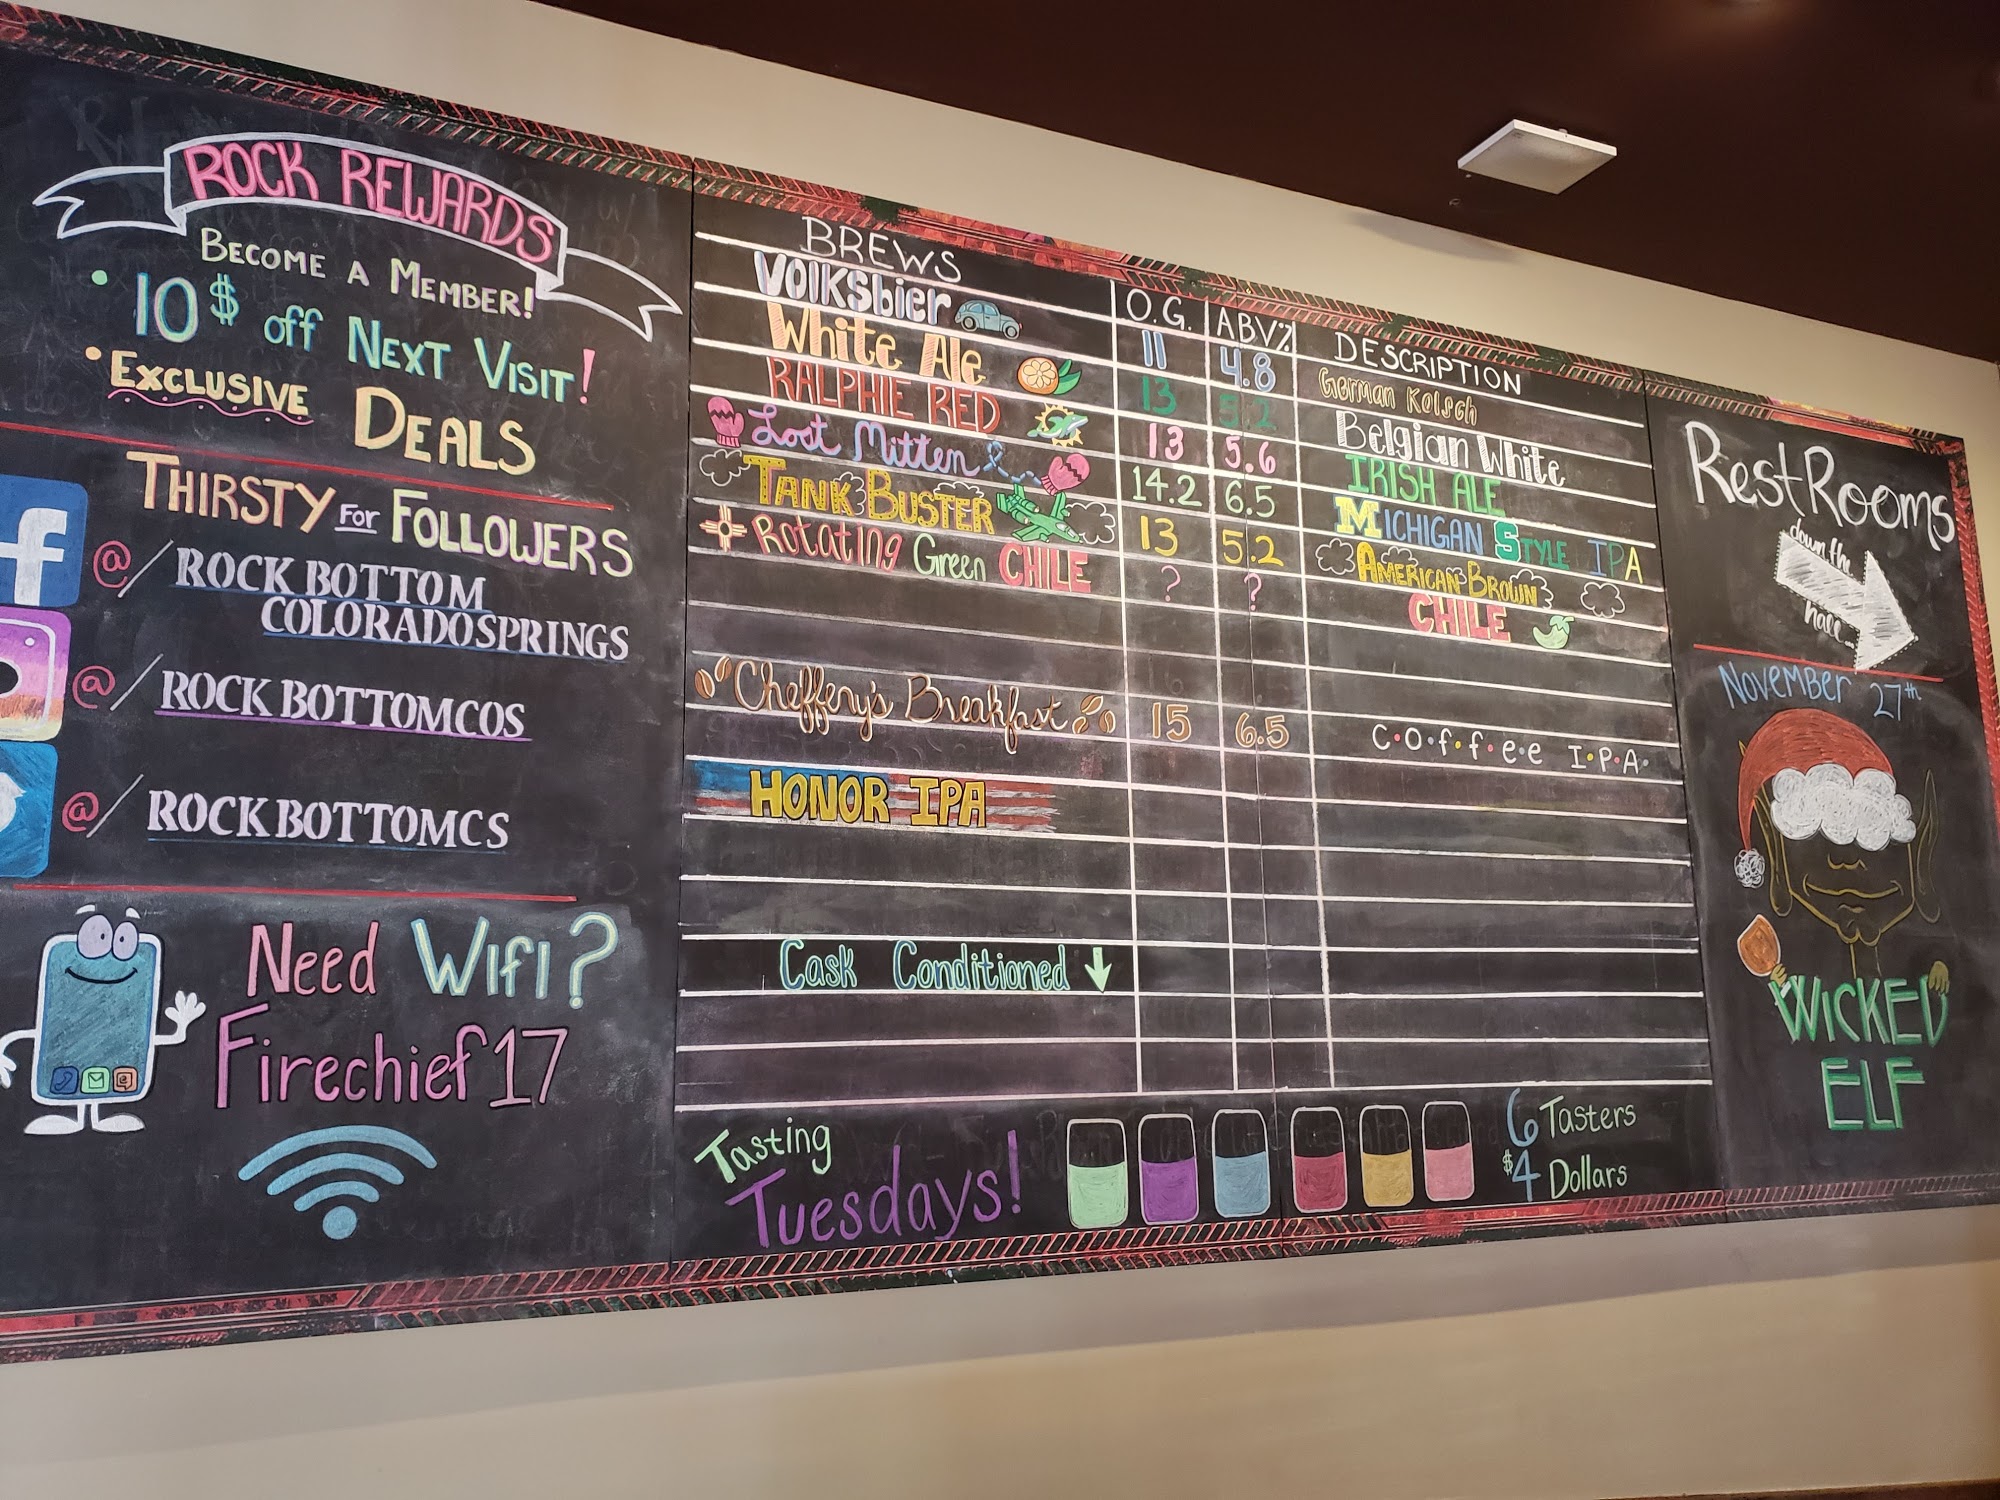 ROCK REWARDS
BECOME A MEMBER!
• 10$ off NEXT VISIT!
• EXCLUSIVE DEALS
THIRSTY FOR FOLLOWERS
f @/ ROCK BOTTOM
COLORADOSPRINGS
@/ ROCK BOTTOMCOS
@/ ROCKBOTTOMCS
Need Wifi?
Firechief17
BREWS O.G. ABV% DESCRIPTION
Volksbier 11 4.8 German Kolsch
White Ale 13 5.2 Belgian White
RALPHIE RED 13 5.6 IRISH ALE
Lost Mitten 14.2 6.5 MICHIGAN STYLE IPA
TANK BUSTER 13 5.2 AMERICAN BROWN
Rotating Green CHILE ? ? CHILE
Cheffery's Breakfast 15 6.5 C•o•f•f•e•e I•P•A•
HONOR IPA
Cask Conditioned ↓
Tasting
Tuesdays!
6 Tasters
$4 Dollars
RestRooms
down th
hall
November 27th
WICKED
ELF